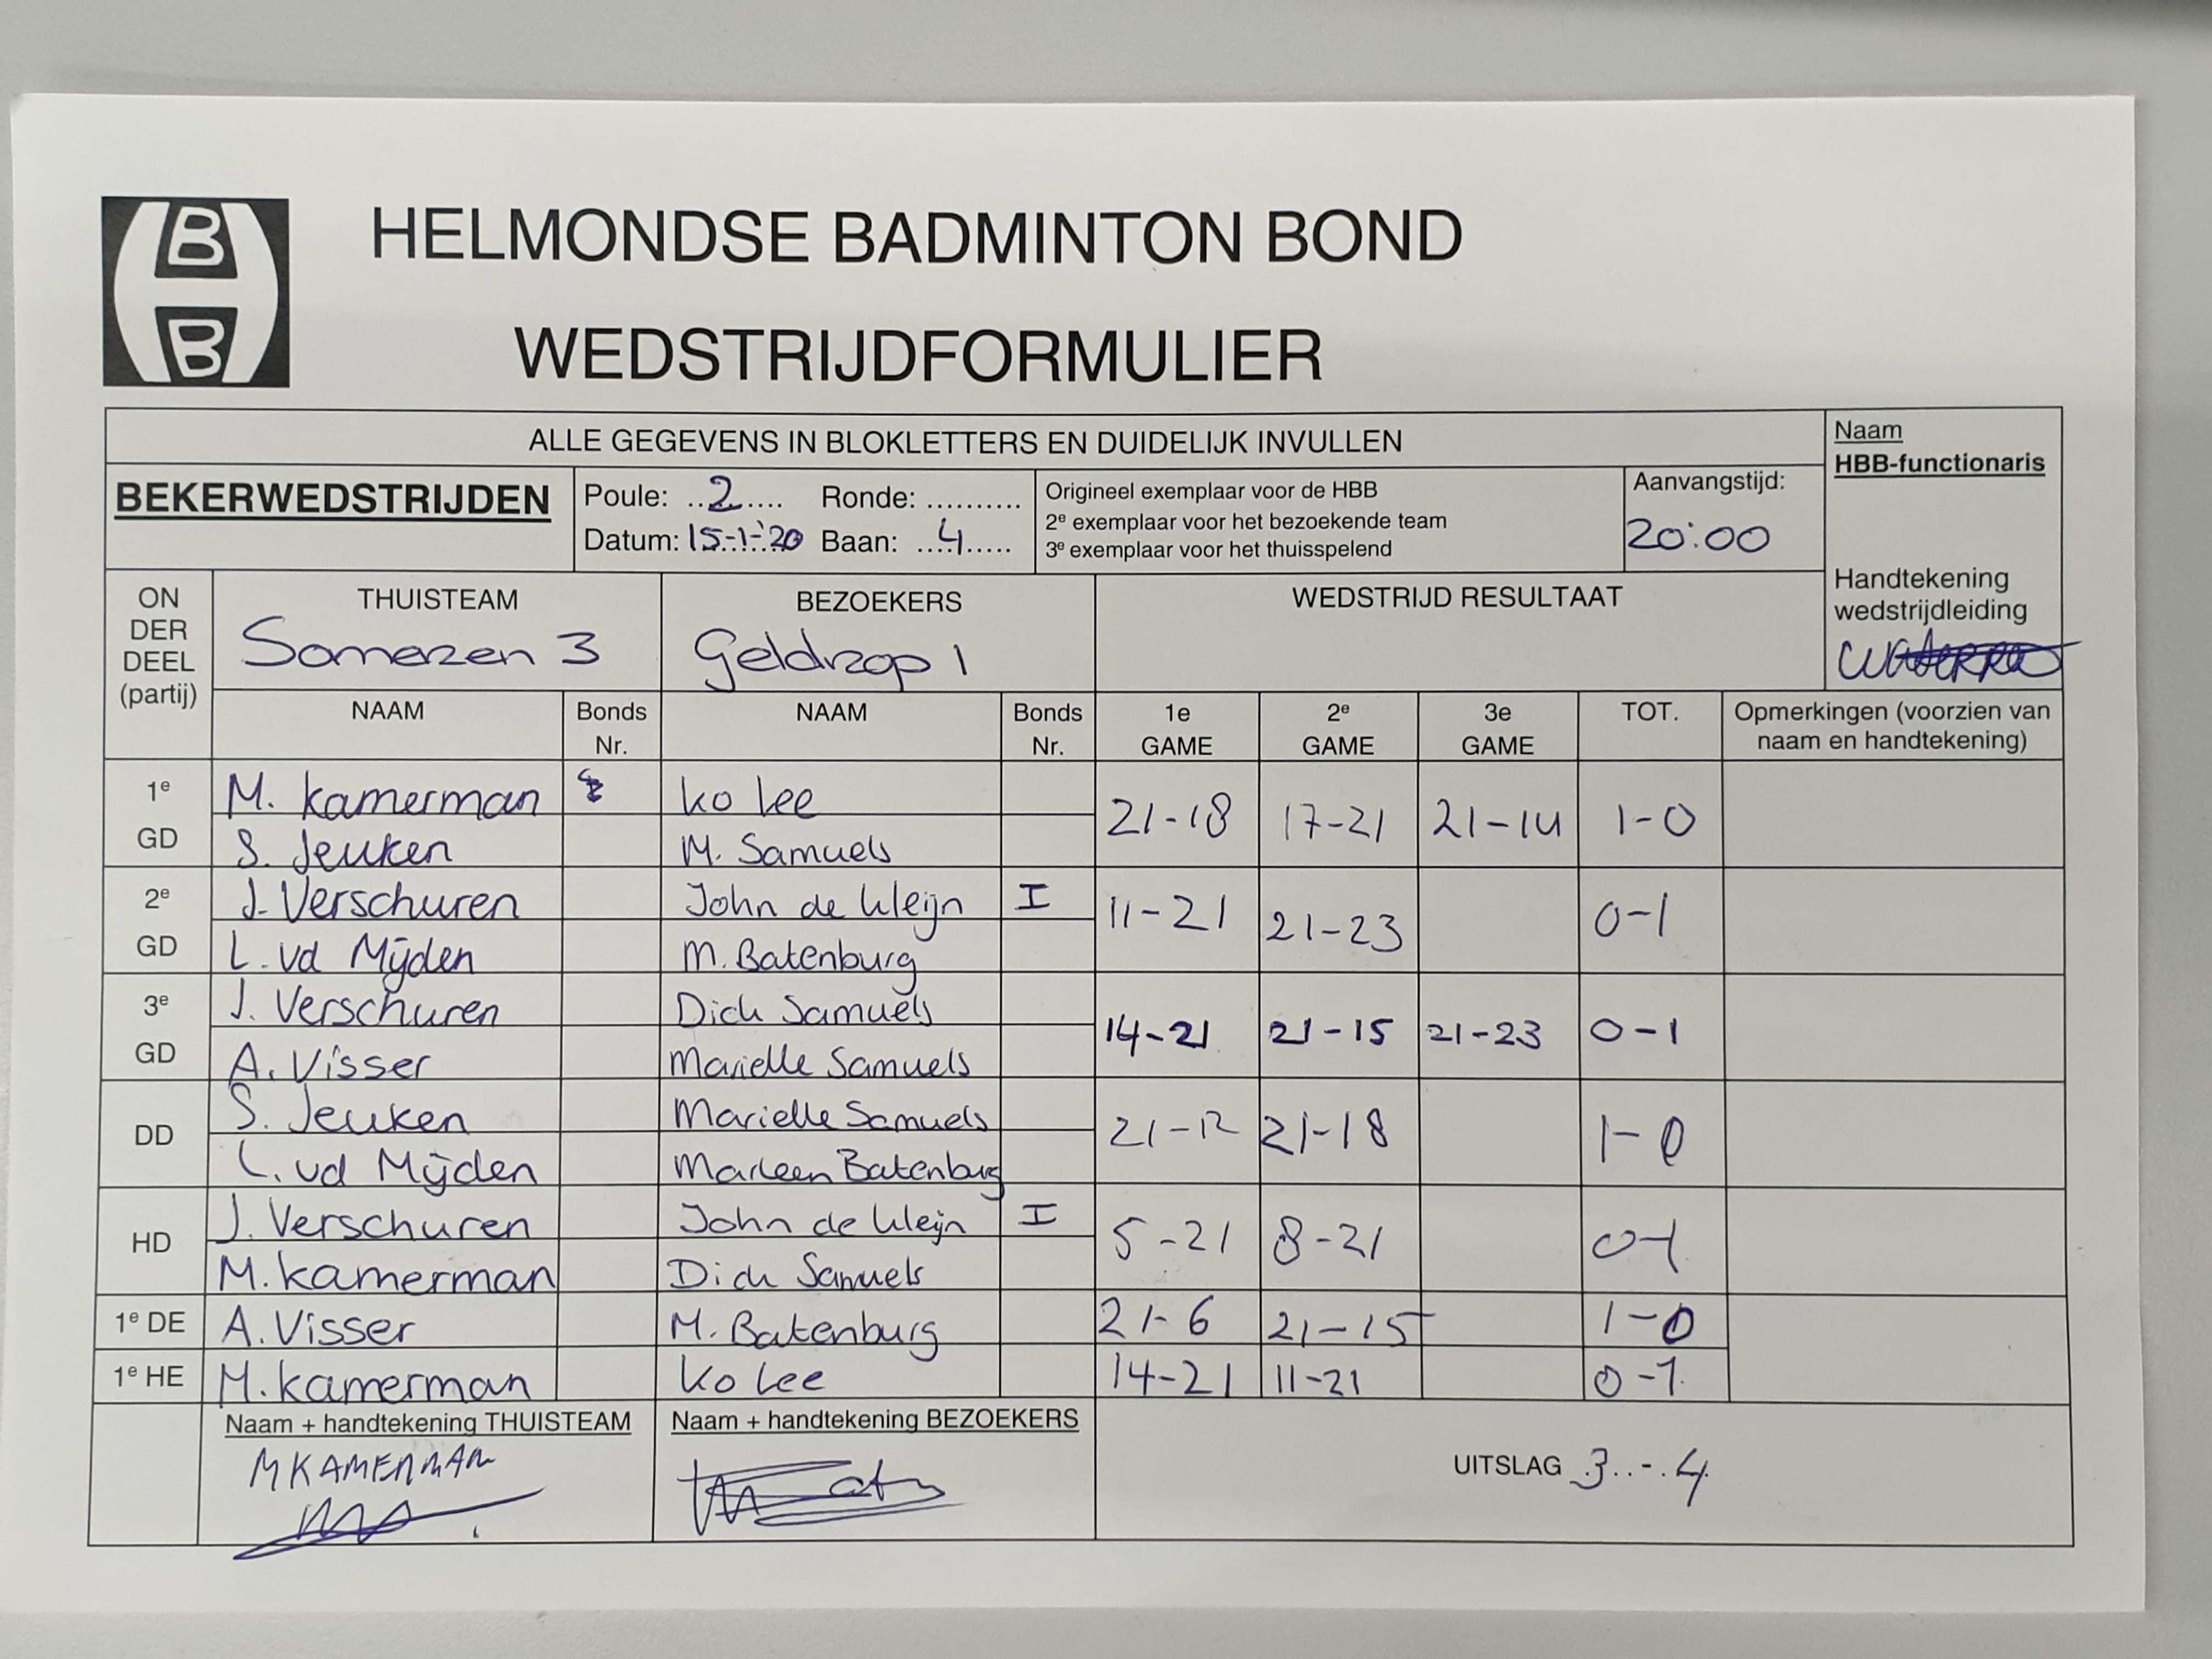 HELMONDSE BADMINTON BOND
WEDSTRIJDFORMULIER
ALLE GEGEVENS IN BLOKLETTERS EN DUIDELIJK INVULLEN
Naam
HBB-functionaris
BEKERWEDSTRIJDEN
Poule: ..2.... Ronde: ..........
Datum: 15-1-'20 Baan: ....4.....
Origineel exemplaar voor de HBB
2e exemplaar voor het bezoekende team
3e exemplaar voor het thuisspelend
Aanvangstijd:
20:00
Handtekening
wedstrijdleiding
ON
DER
DEEL
(partij)
THUISTEAM
Someren 3
BEZOEKERS
Geldrop 1
WEDSTRIJD RESULTAAT
NAAM Bonds Nr. NAAM Bonds Nr. 1e GAME 2e GAME 3e GAME TOT. Opmerkingen (voorzien van naam en handtekening)
1e M. Kamerman Ko Lee
GD S. Jeuken M. Samuels
21-18 17-21 21-14 1-0
2e J. Verschuren John de Kleijn I
GD L. vd Mijden M. Batenburg
11-21 21-23 0-1
3e J. Verschuren Dick Samuels
GD A. Visser Marielle Samuels
14-21 21-15 21-23 0-1
DD
S. Jeuken Marielle Samuels
L. vd Mijden Marleen Batenburg
21-12 21-18 1-0
HD
J. Verschuren John de Kleijn I
M. Kamerman Dick Samuels
5-21 8-21 0-1
1e DE A. Visser M. Batenburg 21-6 21-15 1-0
1e HE M. Kamerman Ko Lee 14-21 11-21 0-1
Naam + handtekening THUISTEAM
M KAMERMAN
Naam + handtekening BEZOEKERS
UITSLAG 3..-.4.